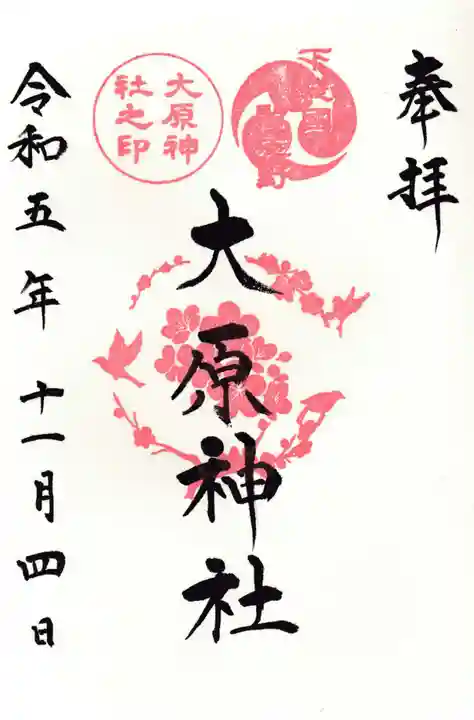 奉拝
下総国
大原神
社之印
大原神社
令和五年十一月四日